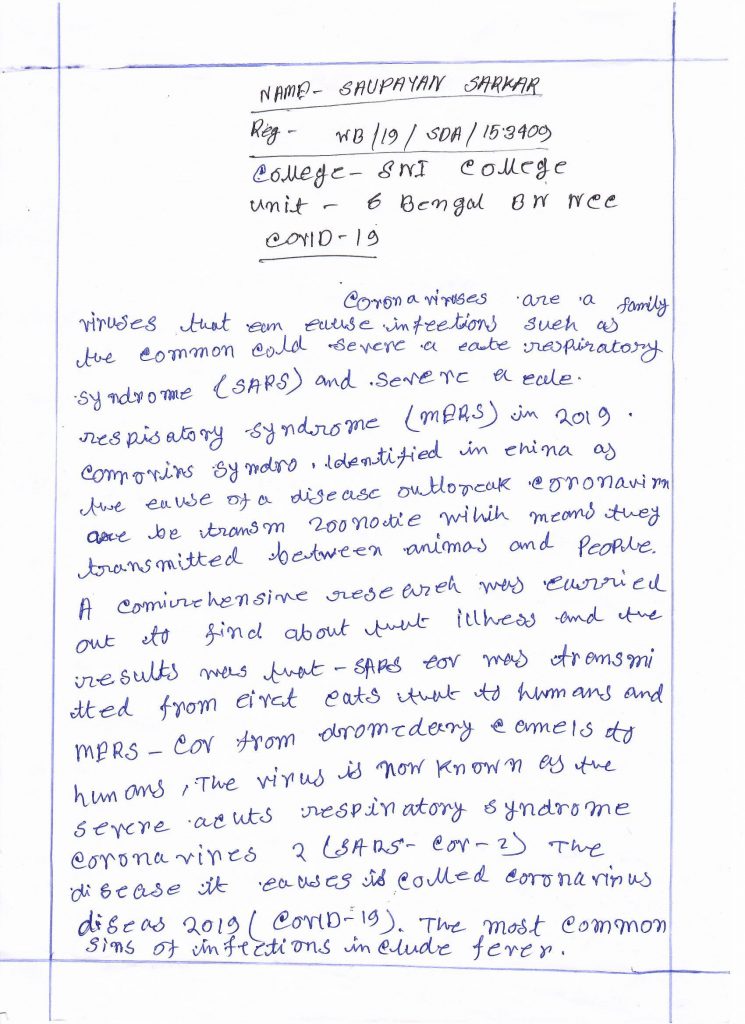 NAME- SAUPAYAN SARKAR
Reg - WB/19/SDA/153409
College- SNI College
unit - 6 Bengal BN NCC
COVID-19
Coronaviruses are a family
viruses that can cause infections such as
the common cold severe a cate respiratory
syndrome (SARS) and severe a cale.
respisatory syndrome (MERS) in 2019.
comovins syndro, Identified in china as
the cause of a disease outloreak coronavirn
are be transm zoonotic wihih means they
transmitted between animas and People.
A comirehensine research was curried
out to find about that illness and the
results was that - SARS cov was transmi
tted from civet cats that to humans and
MERS - Cov from dromedary camels to
humans, The virus is now known as the
severe acuts respinatory syndrome
coronavires 2 (SARS- Cov-2) The
disease it causes is colled coronavirus
diseas 2019 (COVID-19). The most common
sins of infections include fever.